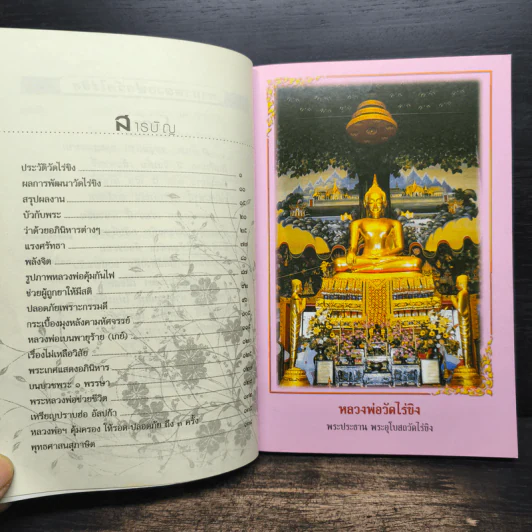 สารบัญ
ประวัติวัดไร่ขิง ๑
ผลการพัฒนาวัดไร่ขิง
สรุปผลงาน
บัวกับพระ
ว่าด้วยอภินิหารต่างๆ
แรงศรัทธา
พลังจิต
รูปภาพหลวงพ่อคุ้มกันไฟ
ช่วยผู้ถูกยาให้มีสติ
ปลอดภัยเพราะกรรมดี
กระเบื้องมุงหลังคามหัศจรรย์
หลวงพ่อเบนพายุร้าย (เกย์)
เรื่องไม่เหลือวิสัย
พระเกศแสดงอภินิหาร
บนบวชพระ ๑ พรรษา
พระหลวงพ่อช่วยชีวิต
เหรียญปราบฮ่อ อัลปก้า
หลวงพ่อฯ คุ้มครอง ให้รอดปลอดภัย ถึง ๓ ครั้ง
พุทธศาสนสุภาษิต
หลวงพ่อวัดไร่ขิง
พระประธาน พระอุโบสถวัดไร่ขิง